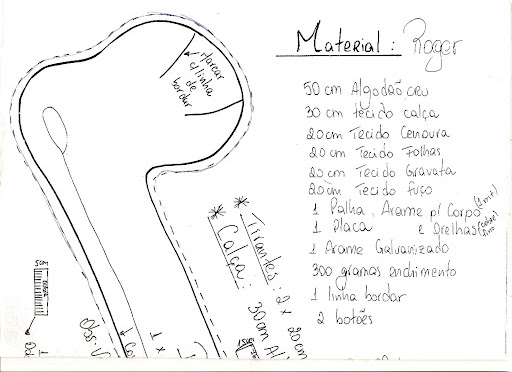 Material: Roger
50 cm Algodão cru
30 cm tecido calça
20 cm Tecido Cenoura
20 cm Tecido Folhas
20 cm Tecido Gravata
20 cm Tecido fuço
1 Palha, Arame p/ Corpo (2 mt)
1 Placa e Orelhas
1 Arame Galvanizado
300 gramas enchimento
1 linha bordar
2 botões
Marcar
c/linha
de
bordar
* Tirantes: 2 x 20 cm
* Calça: 30 cm Al
1 x
Obs:
5cm